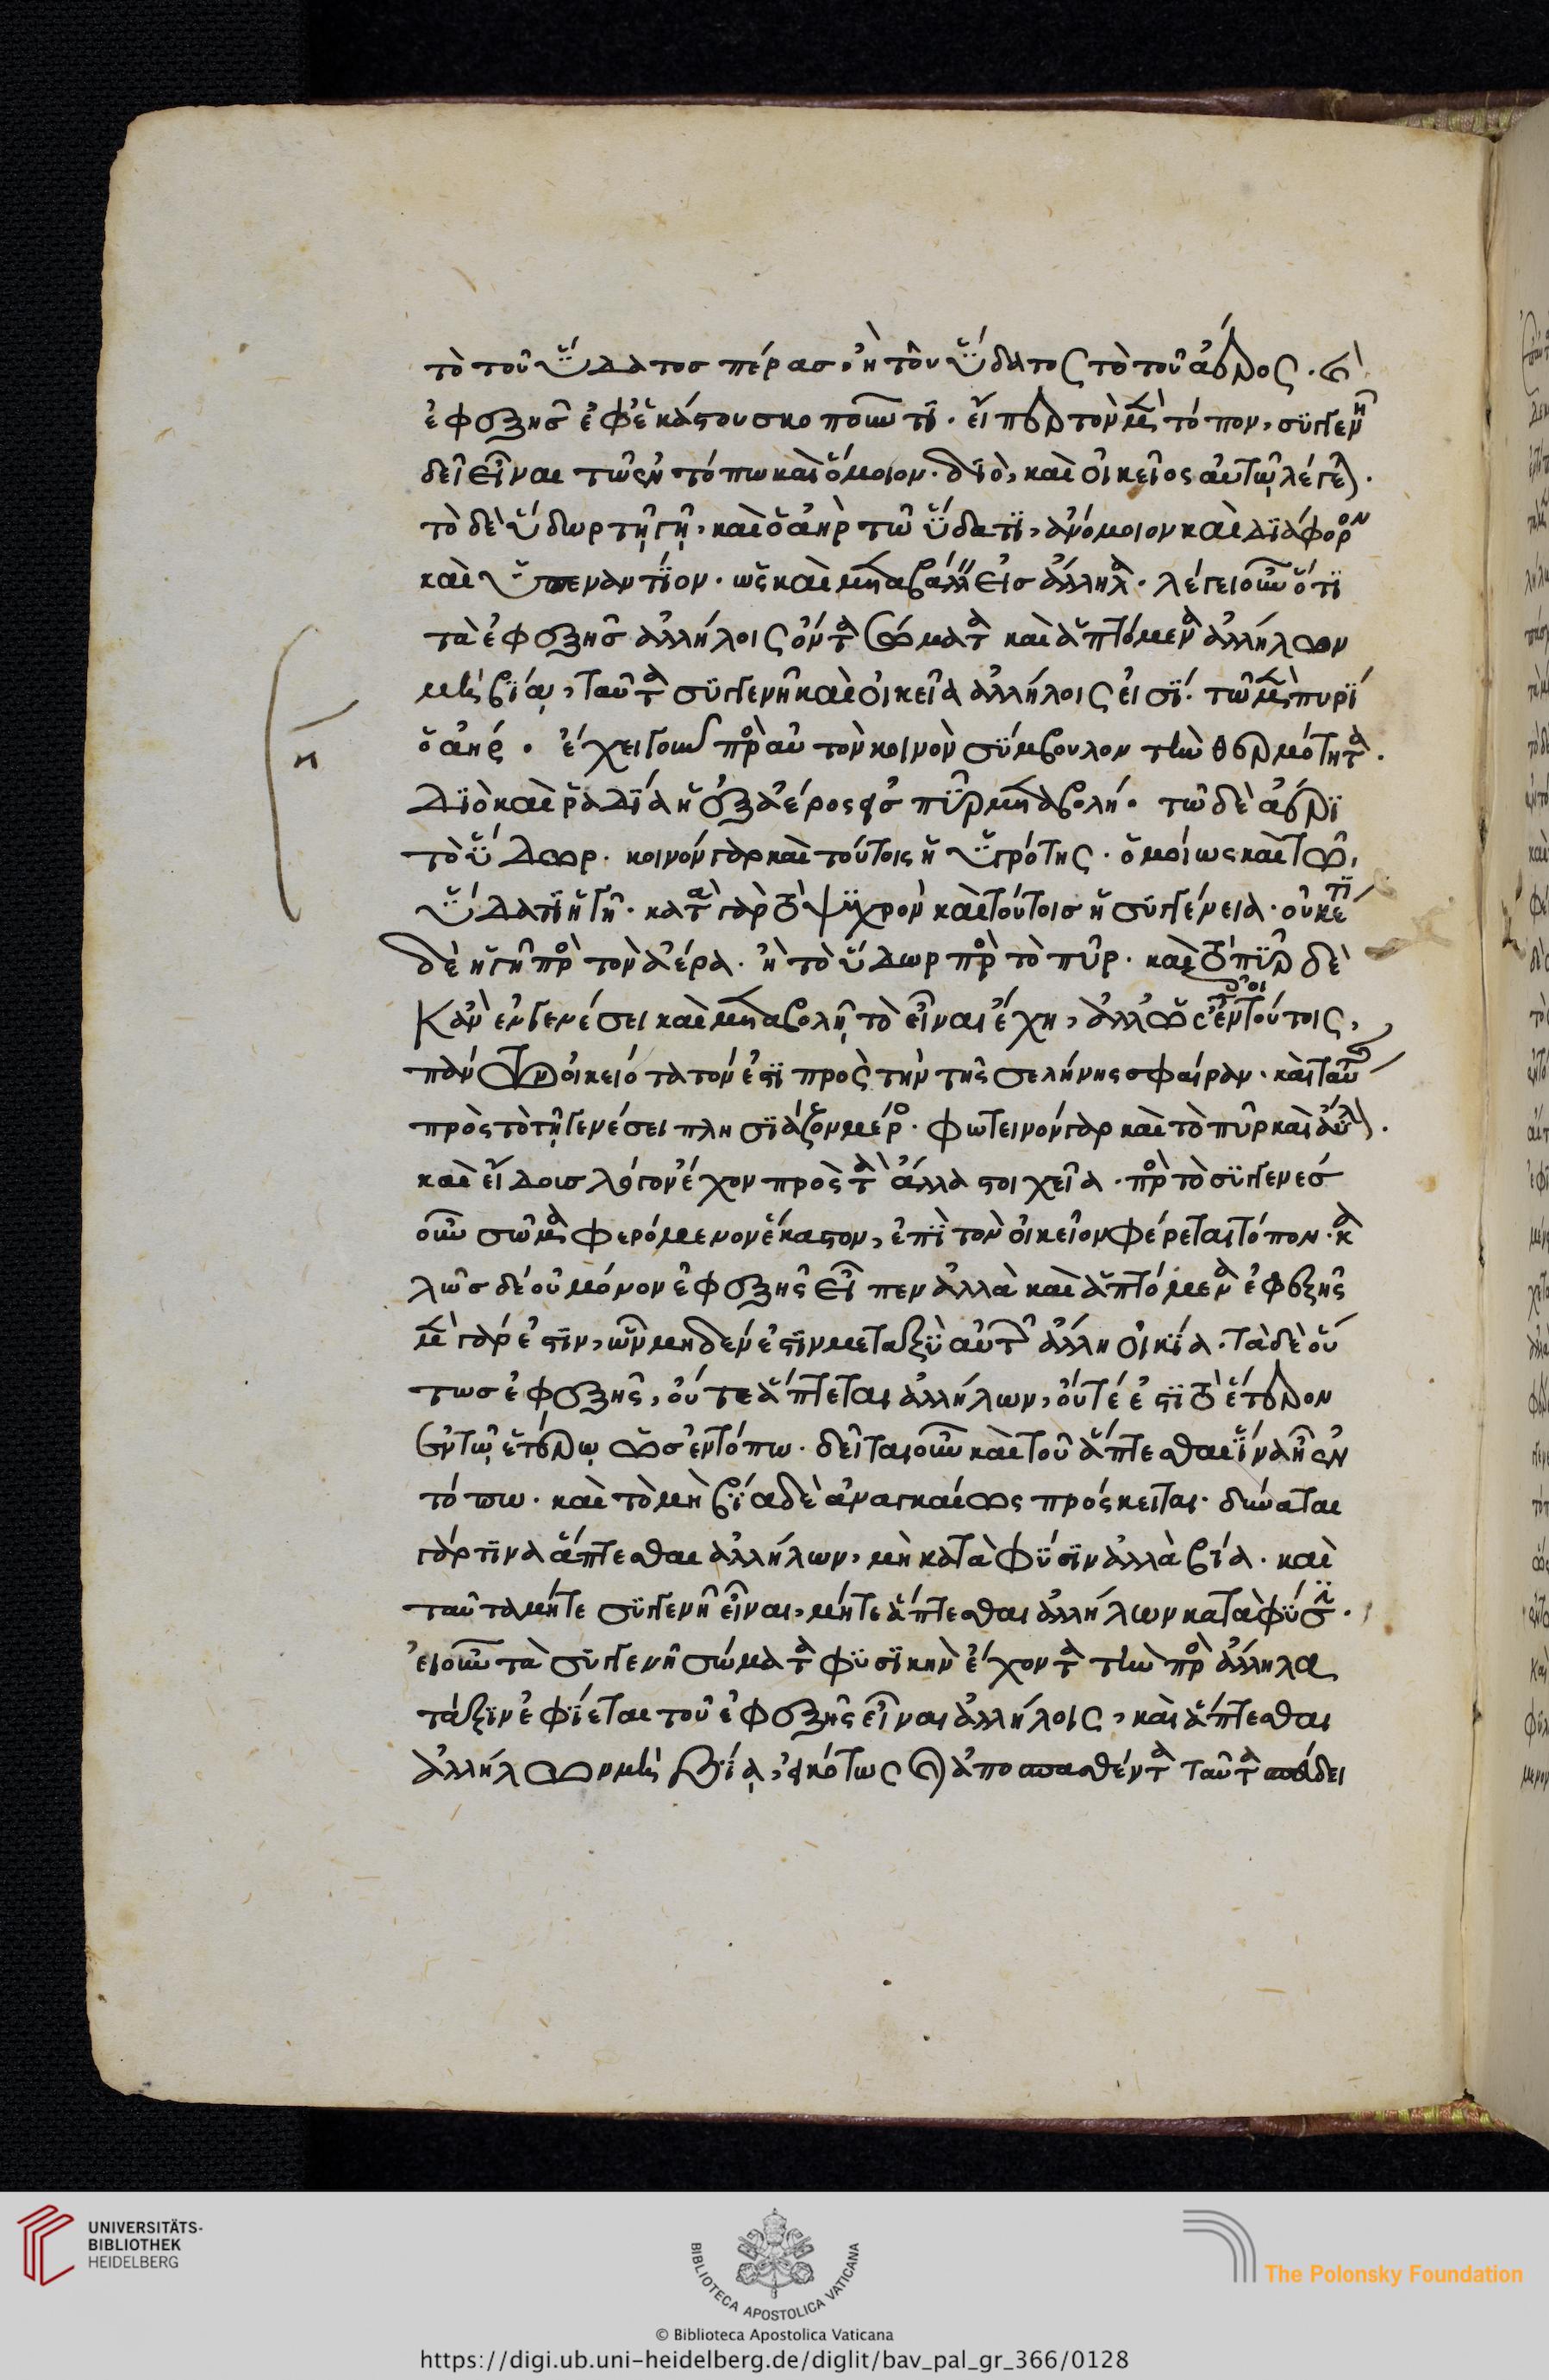 τὸ τοῦ ὕδατος πέρας· ἢ τοῦ ὕδατος τὸ τοῦ ἀέρος.
ἐφεξῆς ἐφ' ἑκάστου σκοποῦντι. εἴπερ τὸν μὲν τόπον, συγγενῆ
δεῖ εἶναι τῷ ἐν τόπῳ καὶ ὅμοιον. διὸ, καὶ οἰκεῖος αὐτῷ λέγεται.
τὸ δὲ ὕδωρ τῇ γῇ, καὶ ὁ ἀὴρ τῷ ὕδατι, ἀνόμοιον καὶ διάφορον
καὶ ὑπεναντίον. ὡς καὶ μεταβάλλει εἰς ἄλληλα. λέγει οὖν ὅτι
τὰ ἐφεξῆς ἀλλήλοις ὄντα σώματα καὶ ἁπτόμενα ἀλλήλων
μὴ βίᾳ, ταῦτα συγγενῆ καὶ οἰκεῖα ἀλλήλοις εἰσί. τῷ μὲν πυρὶ
ὁ ἀήρ. ἔχει γοῦν πρὸς αὐτὸν κοινὸν σύμβουλον τὴν θερμότητα.
διὸ καὶ ῥαδία ἡ ἐξ ἀέρος εἰς πῦρ μεταβολή. τῷ δὲ ἀέρι
τὸ ὕδωρ. κοινὸν γὰρ καὶ τούτοις ἡ ὑγρότης. ὁμοίως καὶ τῷ
ὕδατι ἡ γῆ. κατὰ γὰρ τὸ ψυχρὸν καὶ τούτοις ἡ συγγένεια. οὐκέτι
δὲ ἡ γῆ πρὸς τὸν ἀέρα. ἢ τὸ ὕδωρ πρὸς τὸ πῦρ. καὶ τὸ πῦρ δὲ
κἂν ἐν γενέσει καὶ μεταβολῇ τὸ εἶναι ἔχῃ, ἀλλ' ὡς ἐν τούτοις,
πάντων οἰκειότατόν ἐστι πρὸς τὴν τῆς σελήνης σφαῖραν. καὶ ταῦτα
πρὸς τὸ τῇ γενέσει πλησιάζον μέρος. φωτεινὸν γὰρ καὶ τὸ πῦρ καὶ
καὶ εἴδους λόγον ἔχον πρὸς τὰ ἄλλα στοιχεῖα. πρὸς τὸ συγγενὲς
οὖν σῶμα φερόμενον ἕκαστον, ἐπὶ τὸν οἰκεῖον φέρεται τόπον. κα
λῶς δὲ οὐ μόνον ἐφεξῆς εἶπεν ἀλλὰ καὶ ἁπτόμενα ἐφεξῆς
μὲν γάρ ἐστιν, ὧν μηδέν ἐστιν μεταξὺ αὐτῶν ἄλλη οἰκία. τὰ δὲ οὕ
τως ἐφεξῆς, οὔτε ἅπτεται ἀλλήλων, οὔτέ ἐστι τὸ ἕτερον
ἐν τῷ ἑτέρῳ ὡς ἐν τόπῳ. δεῖται οὖν καὶ τοῦ ἅπτεσθαι ἵνα ᾖ ἐν
τόπῳ. καὶ τὸ μὴ βίᾳ δὲ ἀναγκαίως πρόσκειται. δύναται
γάρ τινα ἅπτεσθαι ἀλλήλων, μὴ κατὰ φύσιν ἀλλὰ βίᾳ. καὶ
ταῦτα μήτε συγγενῆ εἶναι, μήτε ἅπτεσθαι ἀλλήλων κατὰ φύσιν.
εἰ οὖν τὰ συγγενῆ σώματα φυσικὴν ἔχοντα τὴν πρὸς ἄλληλα
τάξιν ἐφίεται τοῦ ἐφεξῆς εἶναι ἀλλήλοις, καὶ ἅπτεσθαι
ἀλλήλων μὴ βίᾳ, εἰκότως καὶ ἀποσπασθέντα ταῦτα σπεύδει
UNIVERSITÄTS-
BIBLIOTHEK
HEIDELBERG
BIBLIOTECA APOSTOLICA VATICANA
© Biblioteca Apostolica Vaticana
The Polonsky Foundation
https://digi.ub.uni-heidelberg.de/diglit/bav_pal_gr_366/0128